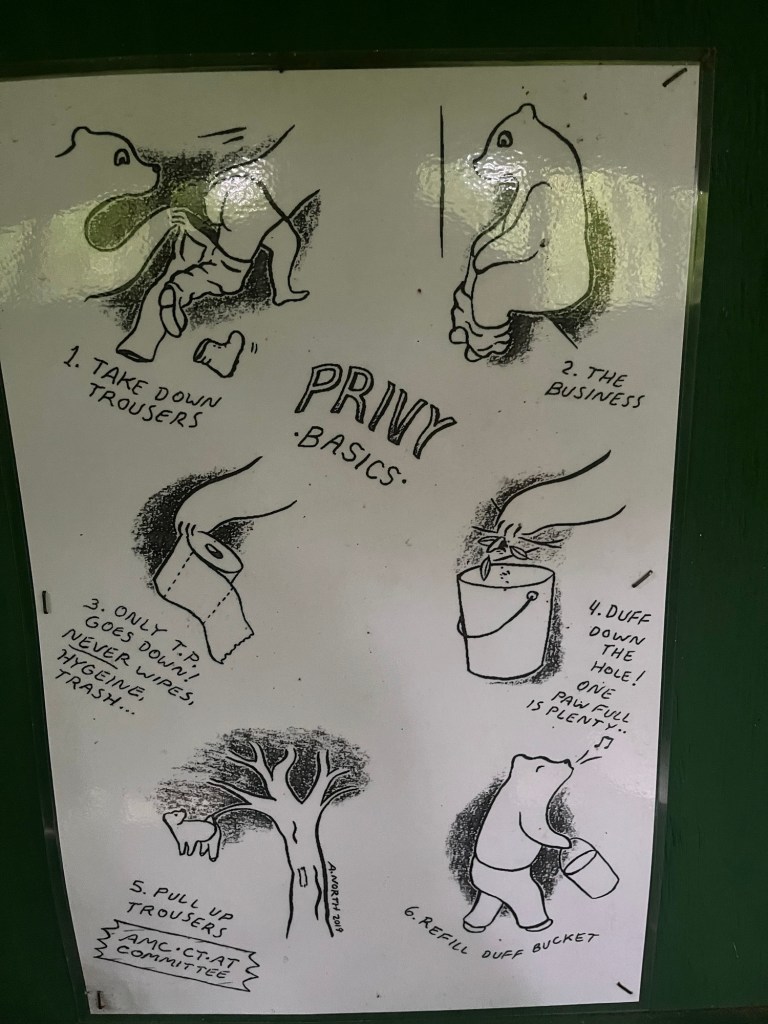 1. TAKE DOWN
TROUSERS
2. THE
BUSINESS
PRIVY
·BASICS·
3. ONLY T.P.
GOES DOWN!
NEVER WIPES,
HYGEINE,
TRASH...
4. DUFF
DOWN
THE
HOLE!
ONE
PAW FULL
IS PLENTY..
5. PULL UP
TROUSERS
A.NORTH 2019
AMC·CT·AT
COMMITTEE
6. REFILL DUFF BUCKET